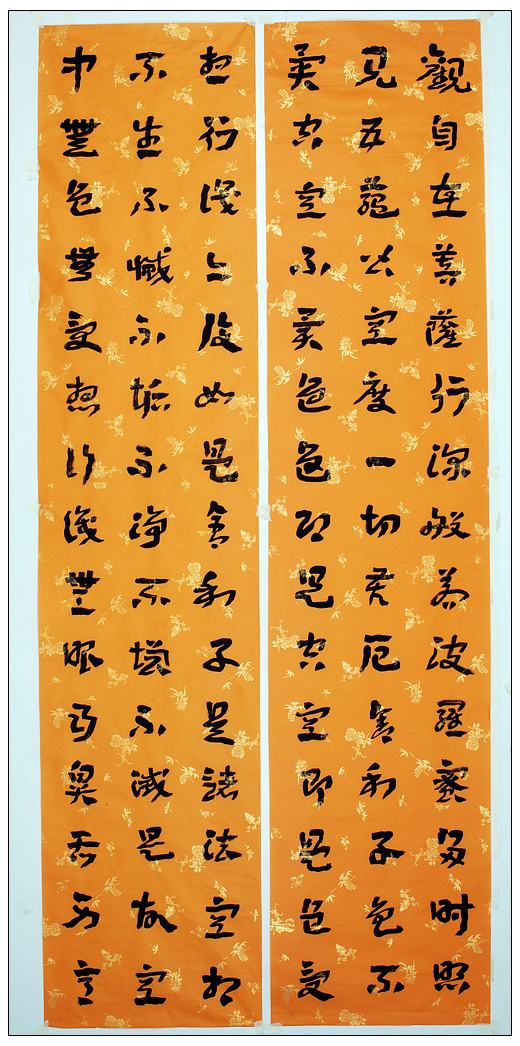 觀自在菩薩行深般若波羅蜜多时照
見五蘊皆空度一切苦厄舍利子色不
異空空不異色色即是空空即是色受
想行識亦復如是舍利子是諸法空相
不生不滅不垢不淨不增不減是故空
中無色無受想行識無眼耳鼻舌身意